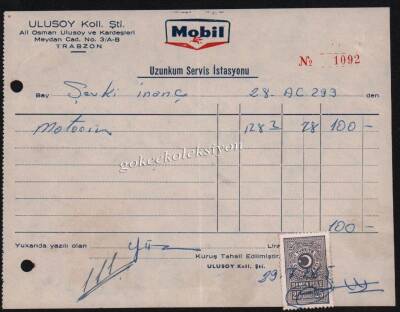 ULUSOY Koll. Şti.
Ali Osman Ulusoy ve Kardeşleri
Meydan Cad. No. 3/A-B
TRABZON
Mobil
Uzunkum Servis İstasyonu
№ 1092
Bay Şevki inanç 28-AC 293 den
Motorin 128 78 100-
gokcekoleksiyon
100-
Yukarıda yazılı olan yüz Lira
Kuruş Tahsil Edilmiştir.
ULUSOY Koll. Şti.